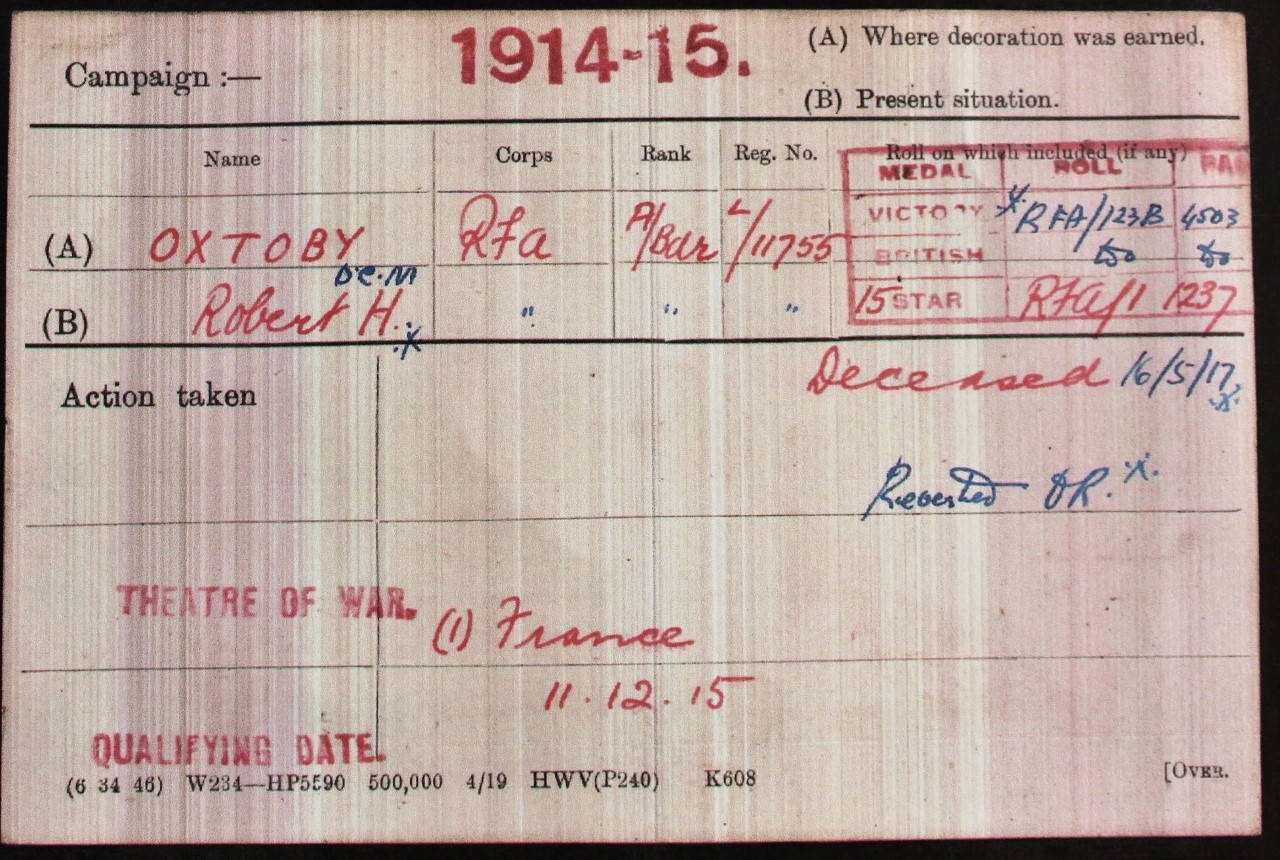 Campaign :— 1914-15. (A) Where decoration was earned.
(B) Present situation.
Name Corps Rank Reg. No. Roll on which included (if any)
MEDAL ROLL PAG
(A) OXTOBY RFA A/Bdr L/11755 VICTORY * RFA/123B 4503
D.C.M BRITISH Do Do
(B) Robert H. * " " " 15 STAR RFA/1 1237
Action taken Deceased 16/5/17 *
Reverted *
THEATRE OF WAR. (1) France
11.12.15
QUALIFYING DATE.
(6 34 46) W234—HP5590 500,000 4/19 HWV(P240) K608 [OVER.